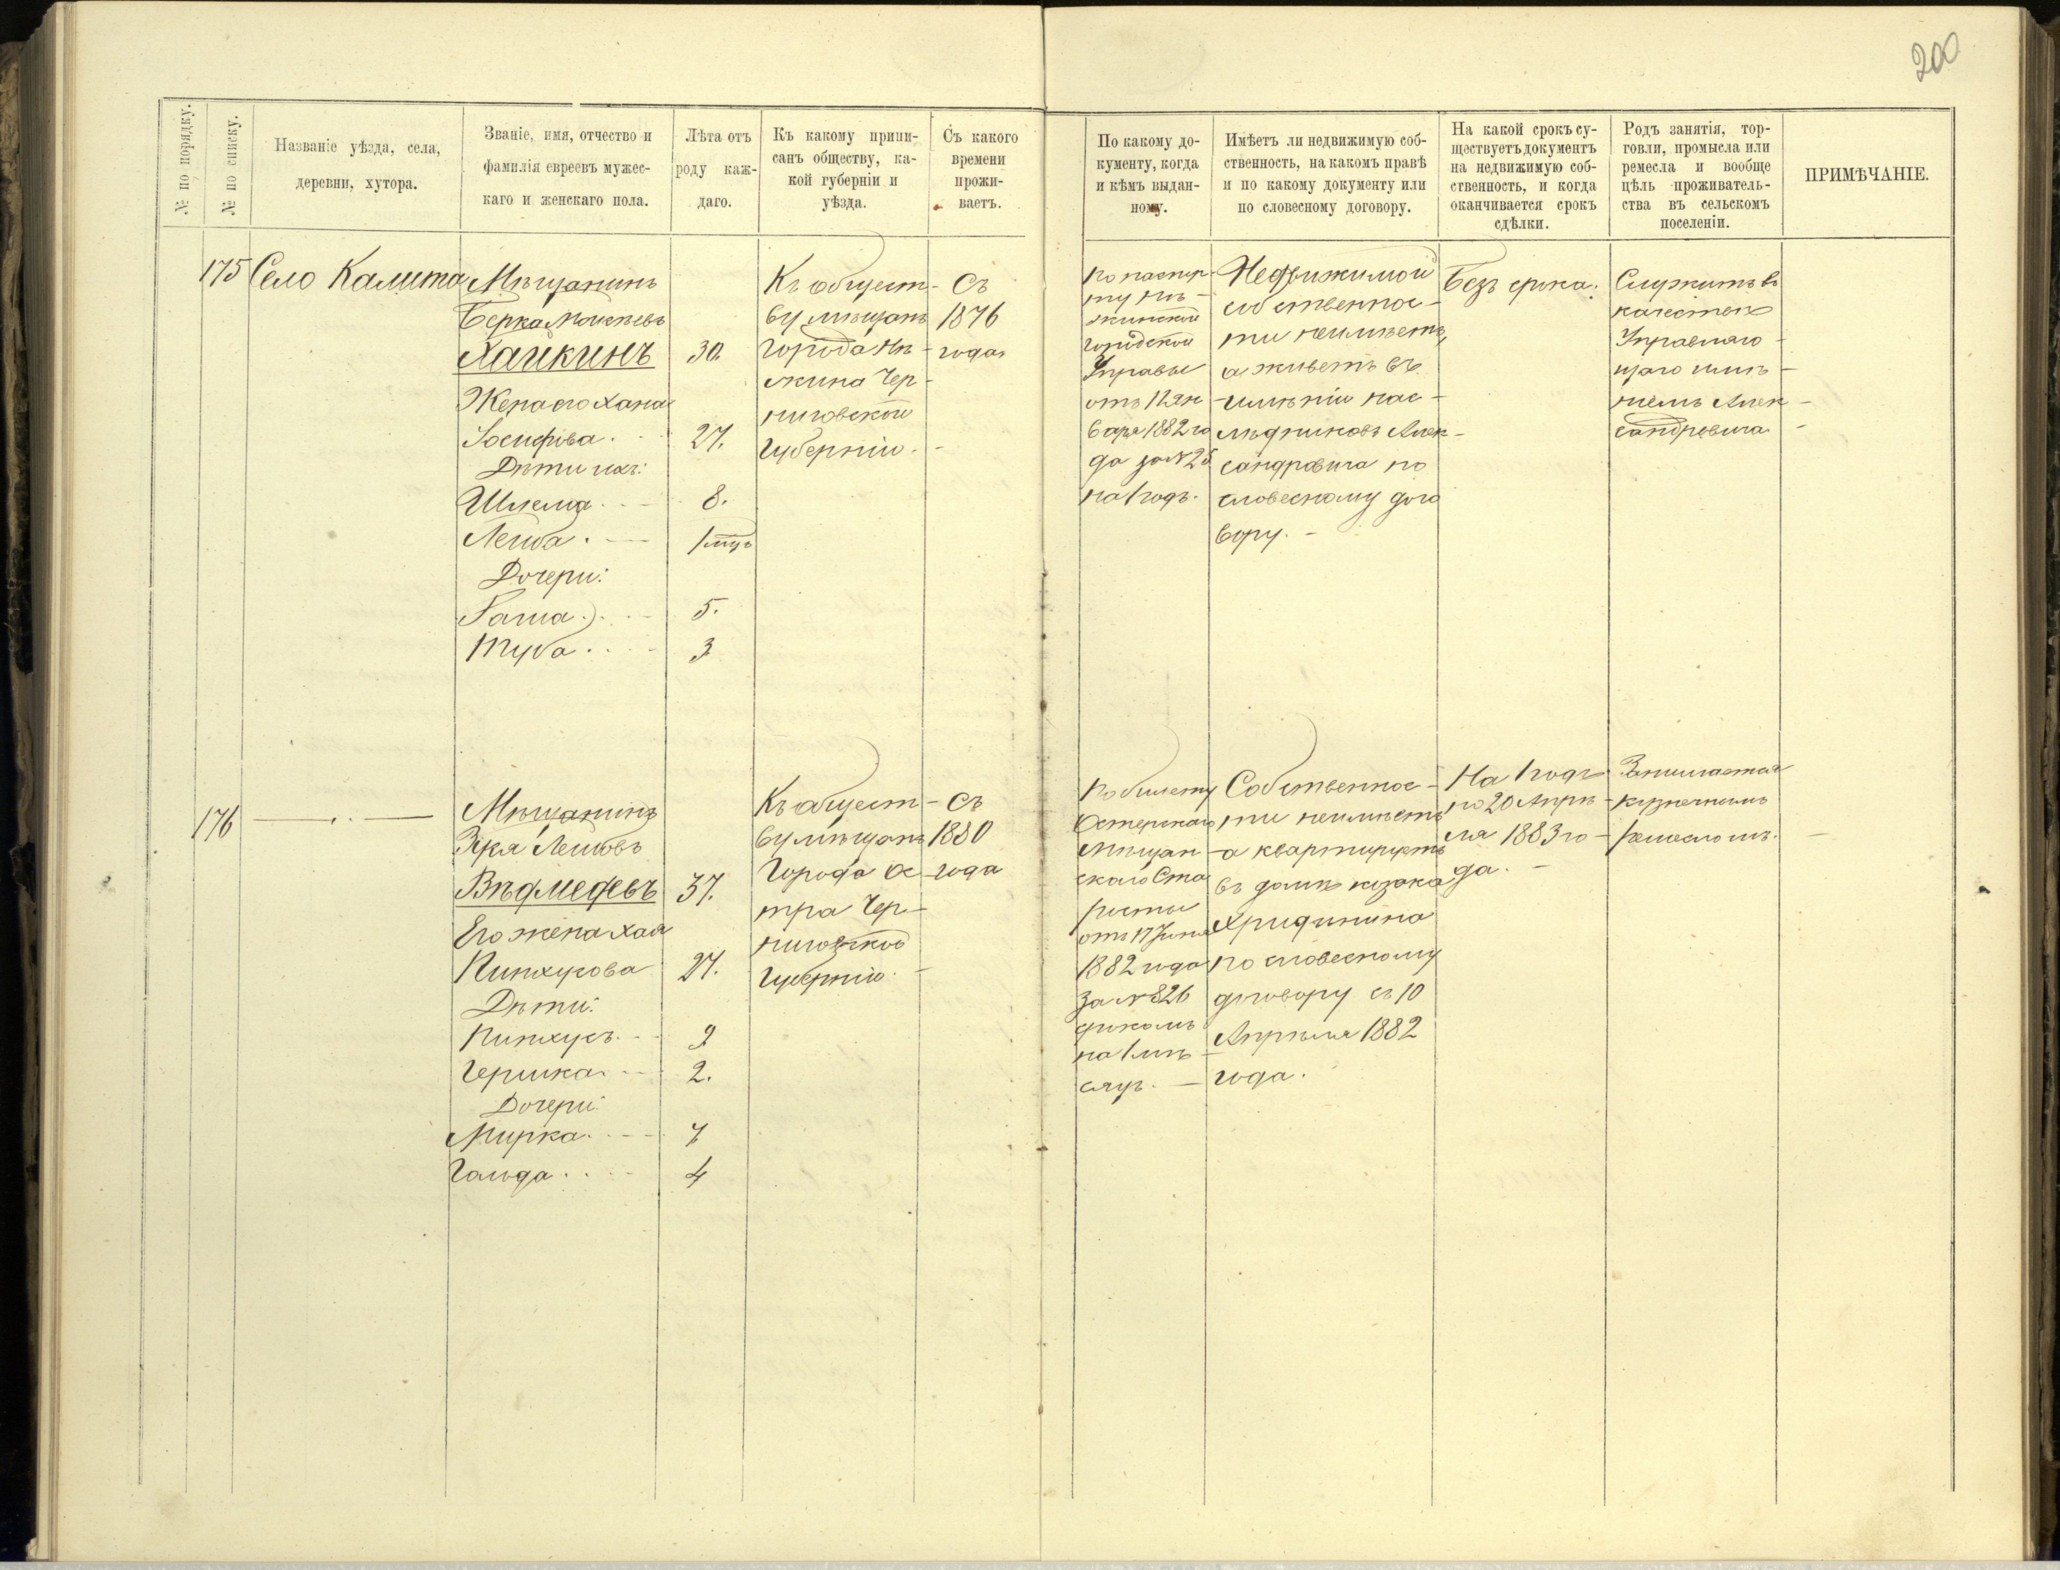 200
№ по порядку.
№ по списку.
Названіе уѣзда, села,
деревни, хутора.
Званіе, имя, отчество и
фамилія евреевъ мужес-
каго и женскаго пола.
Лѣта отъ
роду каж-
даго.
Къ какому припи-
санъ обществу, ка-
кой губерніи и
уѣзда.
Съ какого
времени
прожи-
ваетъ.
По какому до-
кументу, когда
и кѣмъ выдан-
ному.
Имѣетъ ли недвижимую соб-
ственность, на какомъ правѣ
и по какому документу или
по словесному договору.
На какой срокъ су-
ществуетъ документъ
на недвижимую соб-
ственность, и когда
оканчивается срокъ
сдѣлки.
Родъ занятія, тор-
говли, промысла или
ремесла и вообще
цѣль проживатель-
ства въ сельскомъ
поселеніи.
ПРИМѢЧАНІЕ.
175
Село Калита
Мѣщанинъ
Берка Моисѣевъ
Хайкинъ 30.
Жена его Хана
Іосифова 27.
Дѣти ихъ:
Шлема 8.
Лейба 1 мѣц
Дочери:
Гаша 5.
Туба 3
Къ общест-
ву мѣщанъ
города Нѣ-
жина Чер-
ниговской
Губерніи.
Съ
1876
года
По паспор-
ту Нѣ-
жинской
городской
Управы
отъ 12 Ян
варя 1882 го
да за № 25
на 1 годъ.
Недвижимой
собственнос-
ти неимѣетъ,
а живетъ въ
имѣніи нас-
лѣдниковъ Алек-
сандровича по
словесному дого
вору.
Безъ срока.
Служитъ въ
качествѣ
Управляю-
щаго имѣ-
ніемъ Алек-
сандровича
176
Мѣщанинъ
Лейбовъ
Вѣдмедевъ 37.
Его жена Хая
Пинхусова 27.
Дѣти:
Пинхусъ 9
Гершка 2.
Дочери:
Мирка 7
Гольда 4
Къ общест-
ву мѣщанъ
Города Ос-
тра Чер-
ниговской
Губерніи.
Съ
1880
года
По билету
Остерскаго
Мѣщан
скаго Ста
росты
отъ 17 Іюня
1882 года
За № 826
срокомъ
на 1 мѣ-
сяцъ.
Собственнос-
ти неимѣетъ
а квартируетъ
въ домѣ козака
по словесному
договору съ 10
Апрѣля 1882
года.
На 1 годъ
по 20 Апрѣ-
ля 1883 го-
да.
Занимается
кузнечнымъ
ремесломъ.